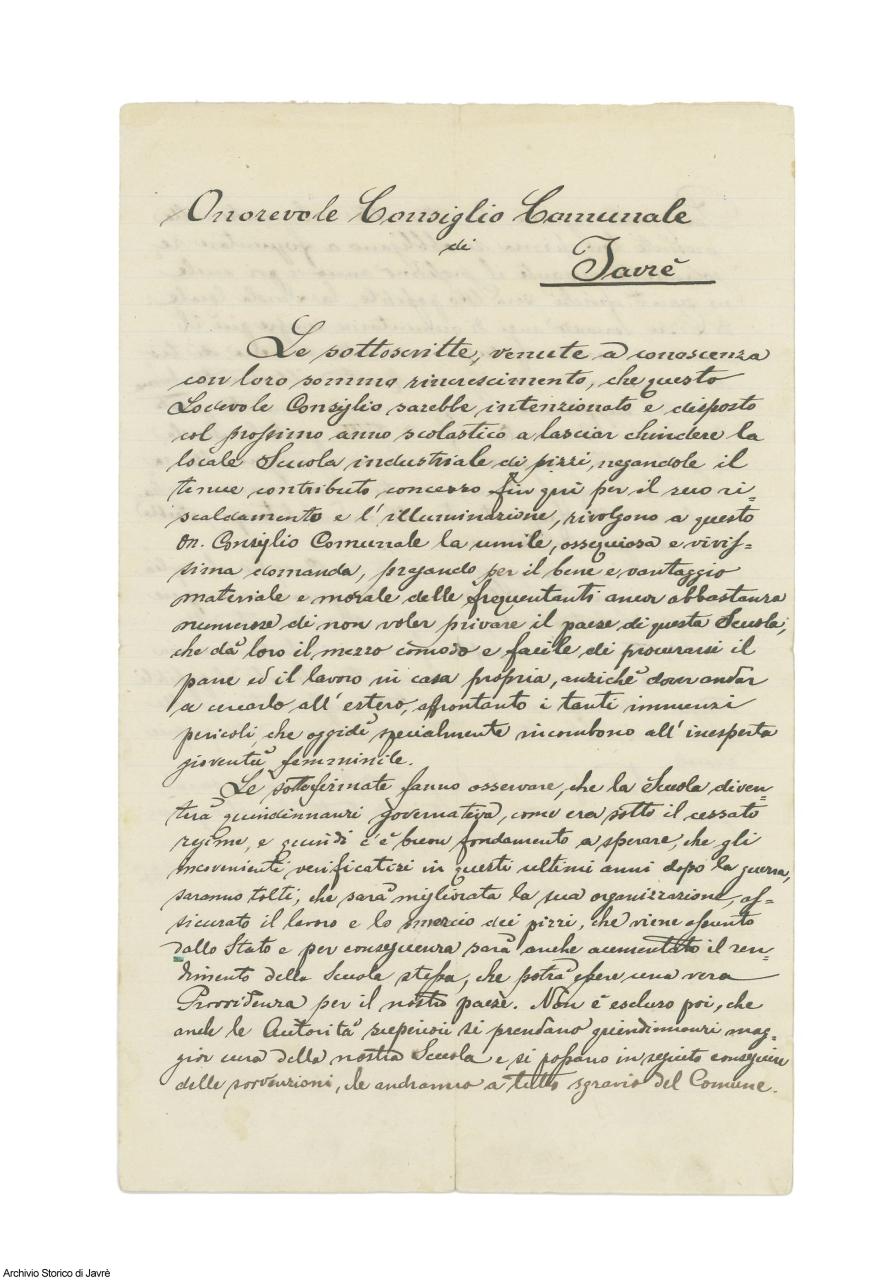 Onorevole Consiglio Comunale
di
Javrè
Le sottoscritte, venute a conoscenza
con loro sommo rincrescimento, che questo
Lodevole Consiglio sarebbe intenzionato e disposto
col prossimo anno scolastico a lasciar chiudere la
locale Scuola industriale di pizzi, negandole il
tenue contributo concesso fin quì per il suo ri=
scaldamento e l'illuminazione, rivolgono a questo
On. Consiglio Comunale la umile, ossequiosa e vivis=
sima domanda, pregando per il bene e vantaggio
materiale e morale delle frequentanti ancor abbastanza
numerose di non voler privare il paese di questa Scuola,
che dà loro il mezzo comodo e facile di procurarsi il
pane ed il lavoro in casa propria, anzichè dover andar
a cercarlo all'estero, affrontanto i tanti immensi
pericoli, che oggidì specialmente incombono all'inesperta
gioventù femminile.
Le sottofirmate fanno osservare, che la Scuola diven=
terà quindinnanzi governativa, come era sotto il cessato
regime, e quindi c'è buon fondamento a sperare, che gli
inconvenienti verificatisi in questi ultimi anni dopo la guerra,
saranno tolti, che sarà migliorata la sua organizzazione, as=
sicurato il lavoro e lo smercio dei pizzi, che viene assunto
dallo Stato e per conseguenza sarà anche aumentato il ren=
dimento della Scuola stessa, che potrà essere una vera
Provvidenza per il nostro paese. Non è escluso poi, che
anche le Autorità superiori si prendano quindinnanzi mag=
gior cura della nostra Scuola e si possano in seguito conseguire
delle sovvenzioni, che andranno a tutto sgravio del Comune.
Archivio Storico di Javrè